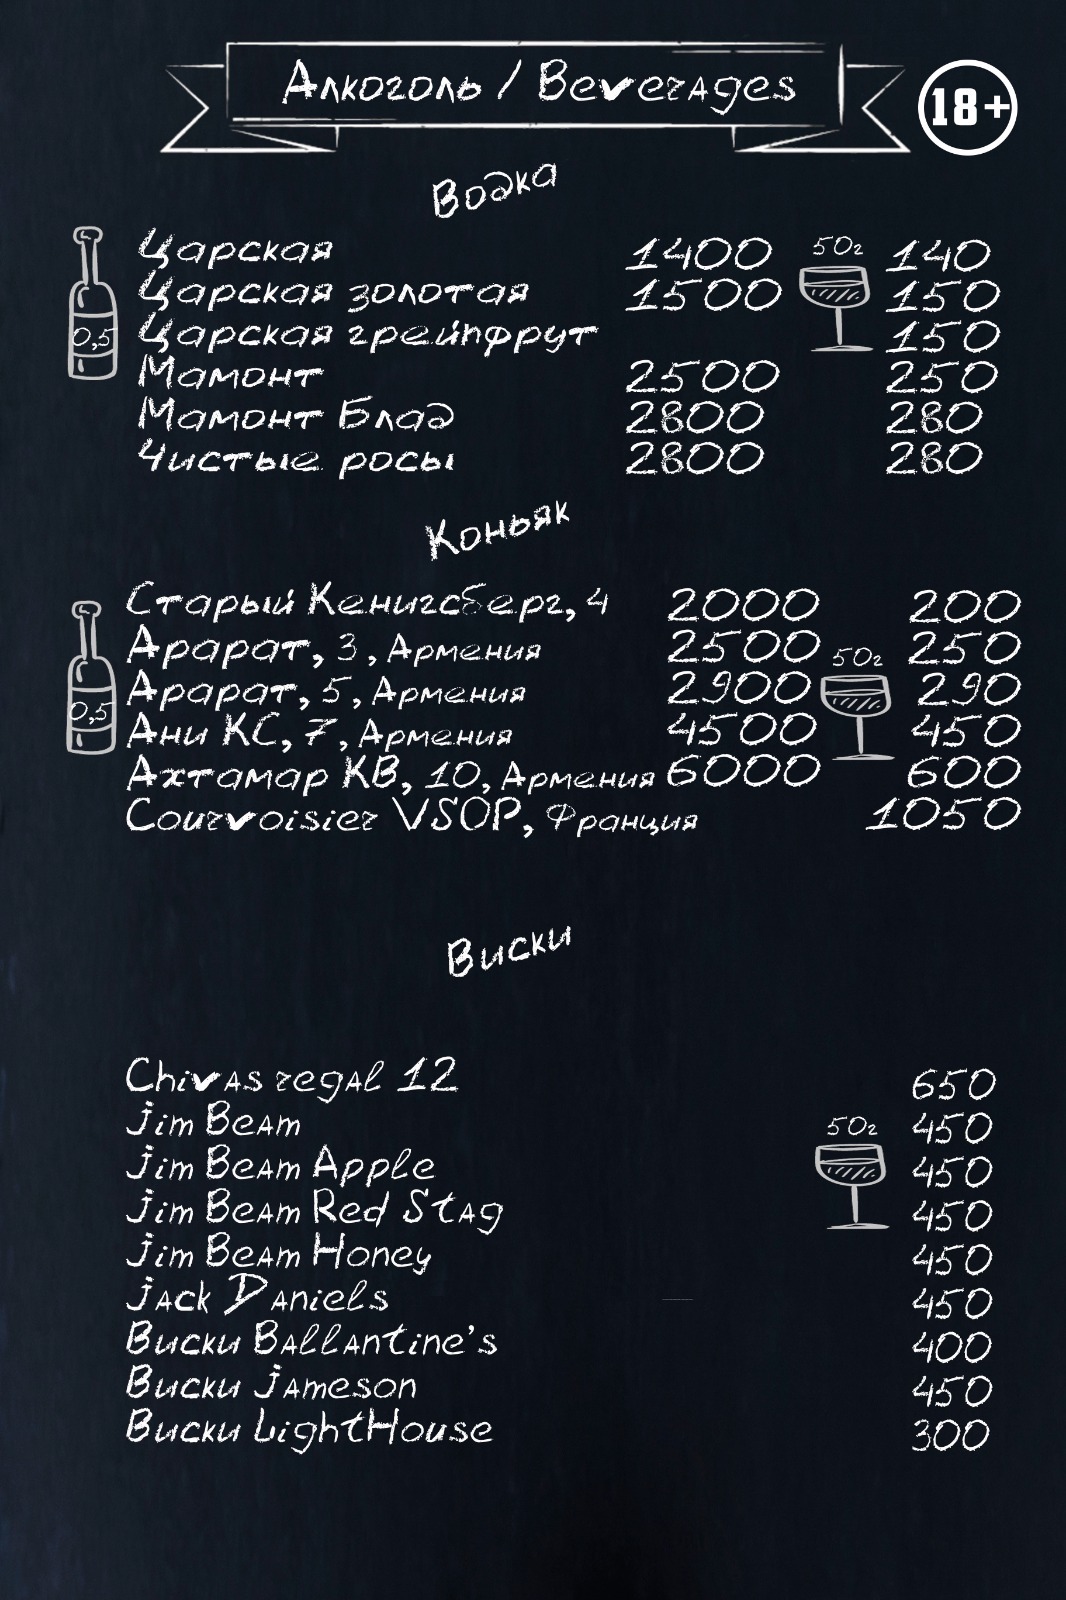 Алкоголь / Beverages
18+
Водка
Царская 1400 50г 140
Царская золотая 1500 150
Царская грейпфрут 150
0,5
Мамонт 2500 250
Мамонт Блад 2800 280
Чистые росы 2800 280
Коньяк
Старый Кенигсберг, 4 2000 200
Арарат, 3, Армения 2500 50г 250
Арарат, 5, Армения 2900 290
0,5
Ани КС, 7, Армения 4500 450
Ахтамар КВ, 10, Армения 6000 600
Courvoisier VSOP, Франция 1050
Виски
Chivas regal 12 650
Jim Beam 50г 450
Jim Beam Apple 450
Jim Beam Red Stag 450
Jim Beam Honey 450
Jack Daniels 450
Виски Ballantine's 400
Виски Jameson 450
Виски LightHouse 300